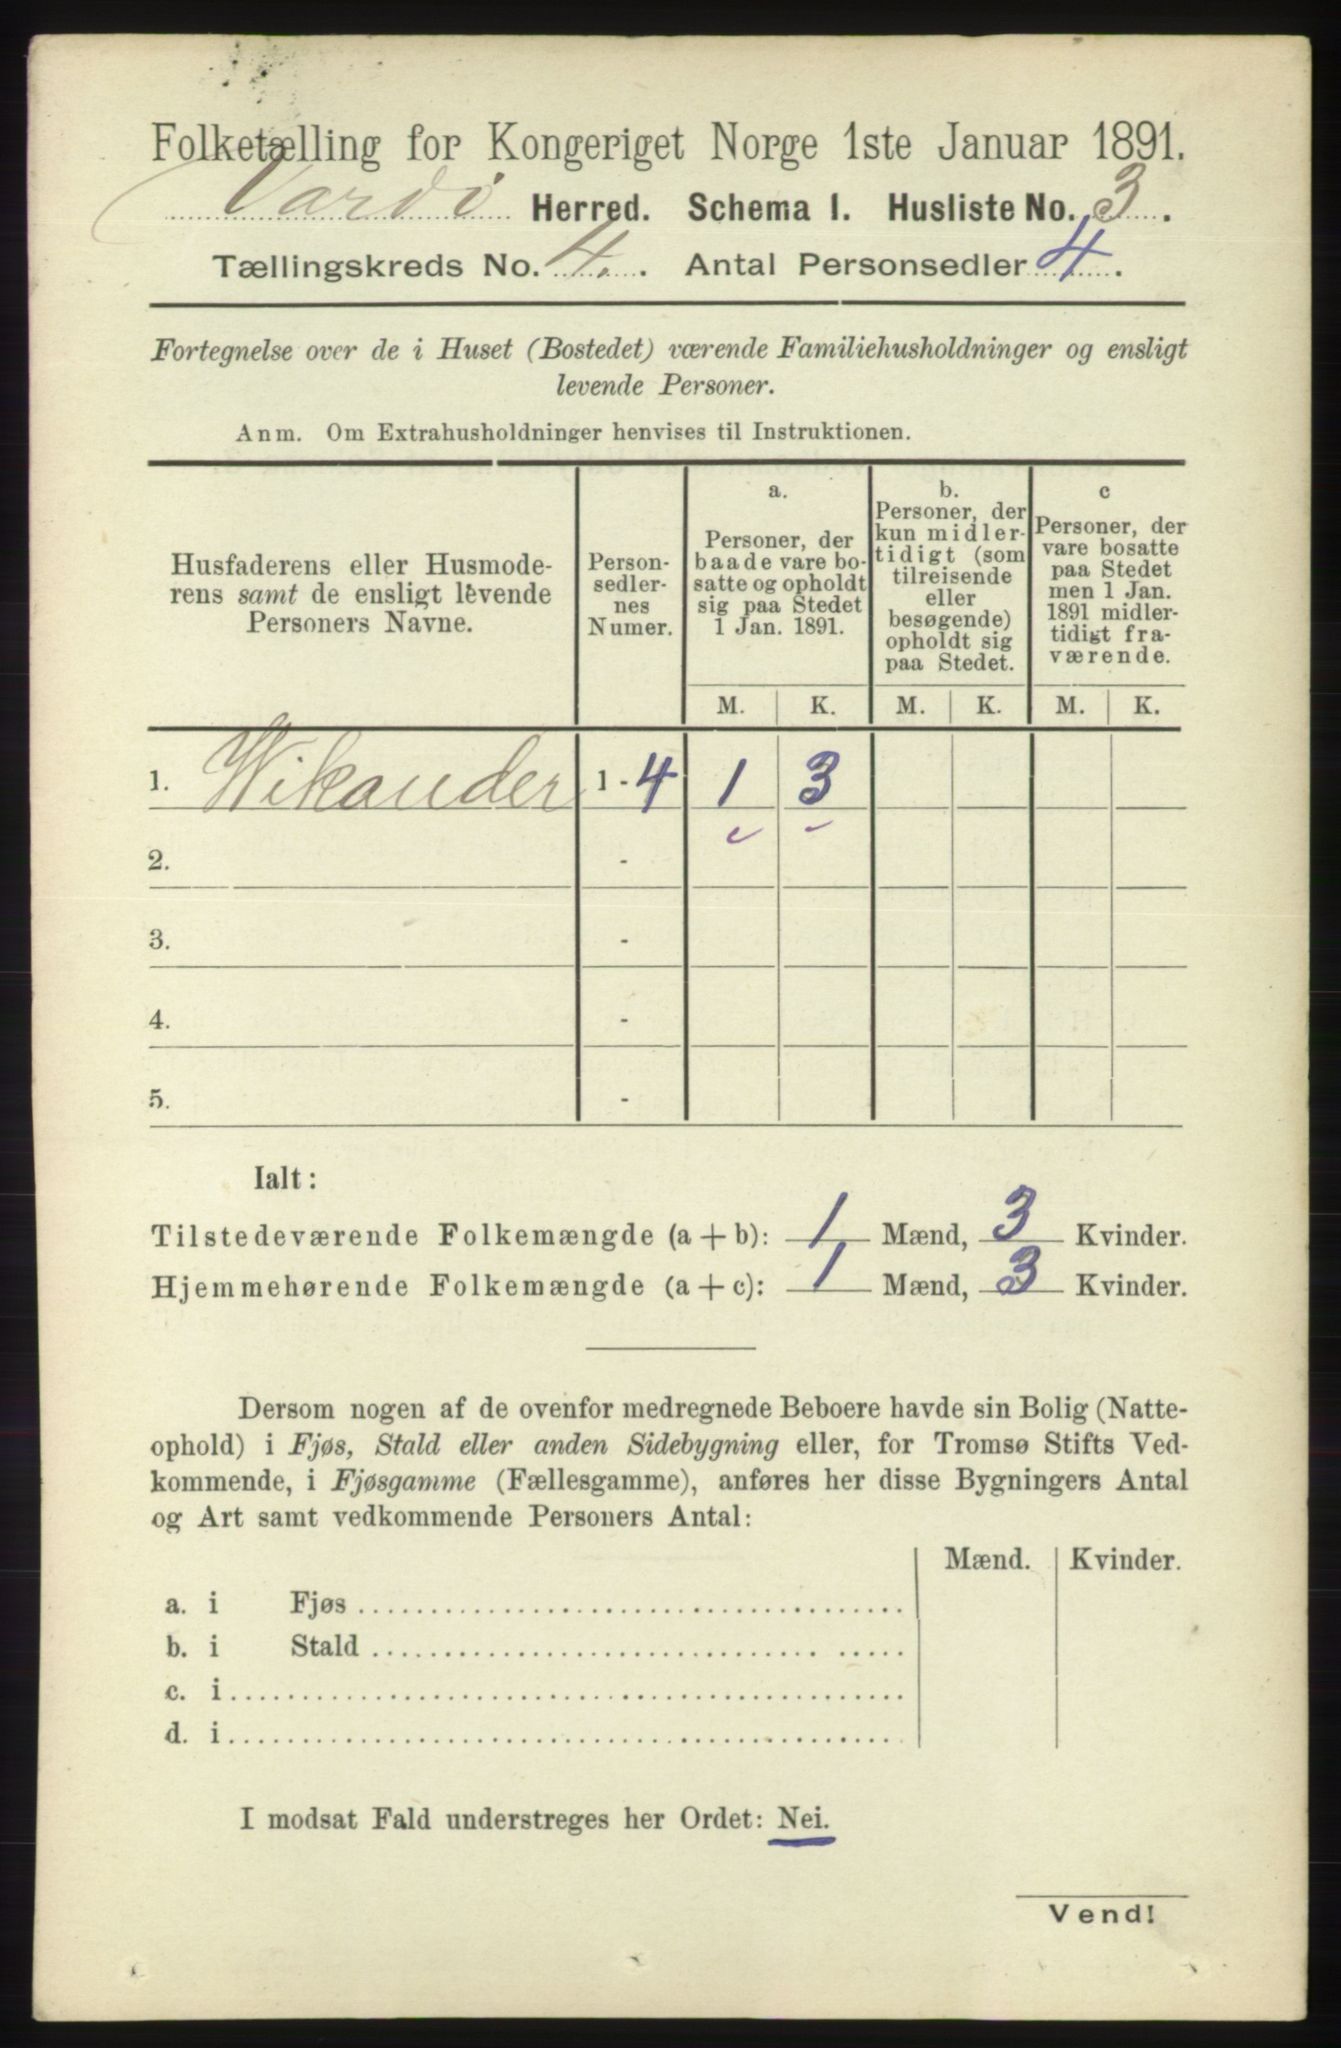 Folketælling for Kongeriget Norge 1ste Januar 1891.
Vardö Herred. Schema I. Husliste No. 3.
Tællingskreds No. 4. Antal Personsedler 4.
Fortegnelse over de i Huset (Bostedet) værende Familiehusholdninger og ensligt
levende Personer.
Anm. Om Extrahusholdninger henvises til Instruktionen.
Husfaderens eller Husmode-
rens samt de ensligt levende
Personers Navne.
Person-
sedler-
nes
Numer.
a.
Personer, der
baade vare bo-
satte og opholdt
sig paa Stedet
1 Jan. 1891.
b.
Personer, der
kun midler-
tidigt (som
tilreisende
eller
besøgende)
opholdt sig
paa Stedet.
c
Personer, der
vare bosatte
paa Stedet
men 1 Jan.
1891 midler-
tidigt fra-
værende.
M. K. M. K. M. K.
1. Wikander 1 - 4 1 3
2. -
3. -
4. -
5. -
Ialt:
Tilstedeværende Folkemængde (a + b): 1 Mænd, 3 Kvinder.
Hjemmehørende Folkemængde (a + c): 1 Mænd, 3 Kvinder.
Dersom nogen af de ovenfor medregnede Beboere havde sin Bolig (Natte-
ophold) i Fjøs, Stald eller anden Sidebygning eller, for Tromsø Stifts Ved-
kommende, i Fjøsgamme (Fællesgamme), anføres her disse Bygningers Antal
og Art samt vedkommende Personers Antal:
Mænd. Kvinder.
a. i Fjøs
b. i Stald
c. i
d. i
I modsat Fald understreges her Ordet: Nei.
Vend!